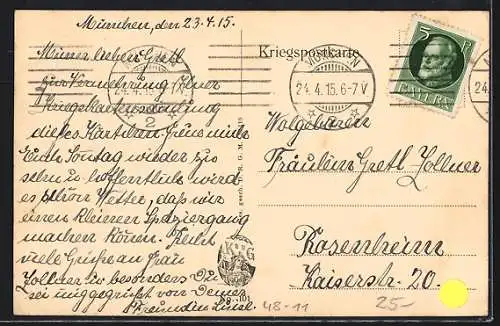 München, den 23.4.15.
Meiner lieben Gretl
zur Vermehrung Ihrer
Kriegskartensammlung
dieses Kärtchen. Freue mich
Euch Sonntag wieder zu
sehen u. hoffentlich wird
es schön Wetter, daß wir
einen kleinen Spaziergang
machen können. Recht
viele Grüße an Frau
Zollner u. besonders Du
sei mitgegrüßt von Deiner
Freundin Luise.
Kriegspostkarte
MÜNCHEN
24.4.15.6-7V
2
5
BAYERN
Wohlgeboren
Fräulein Gretl Zollner
Rosenheim
Kaiserstr. 20.
gesch. D. R. G. M.
K G
48-11
25-